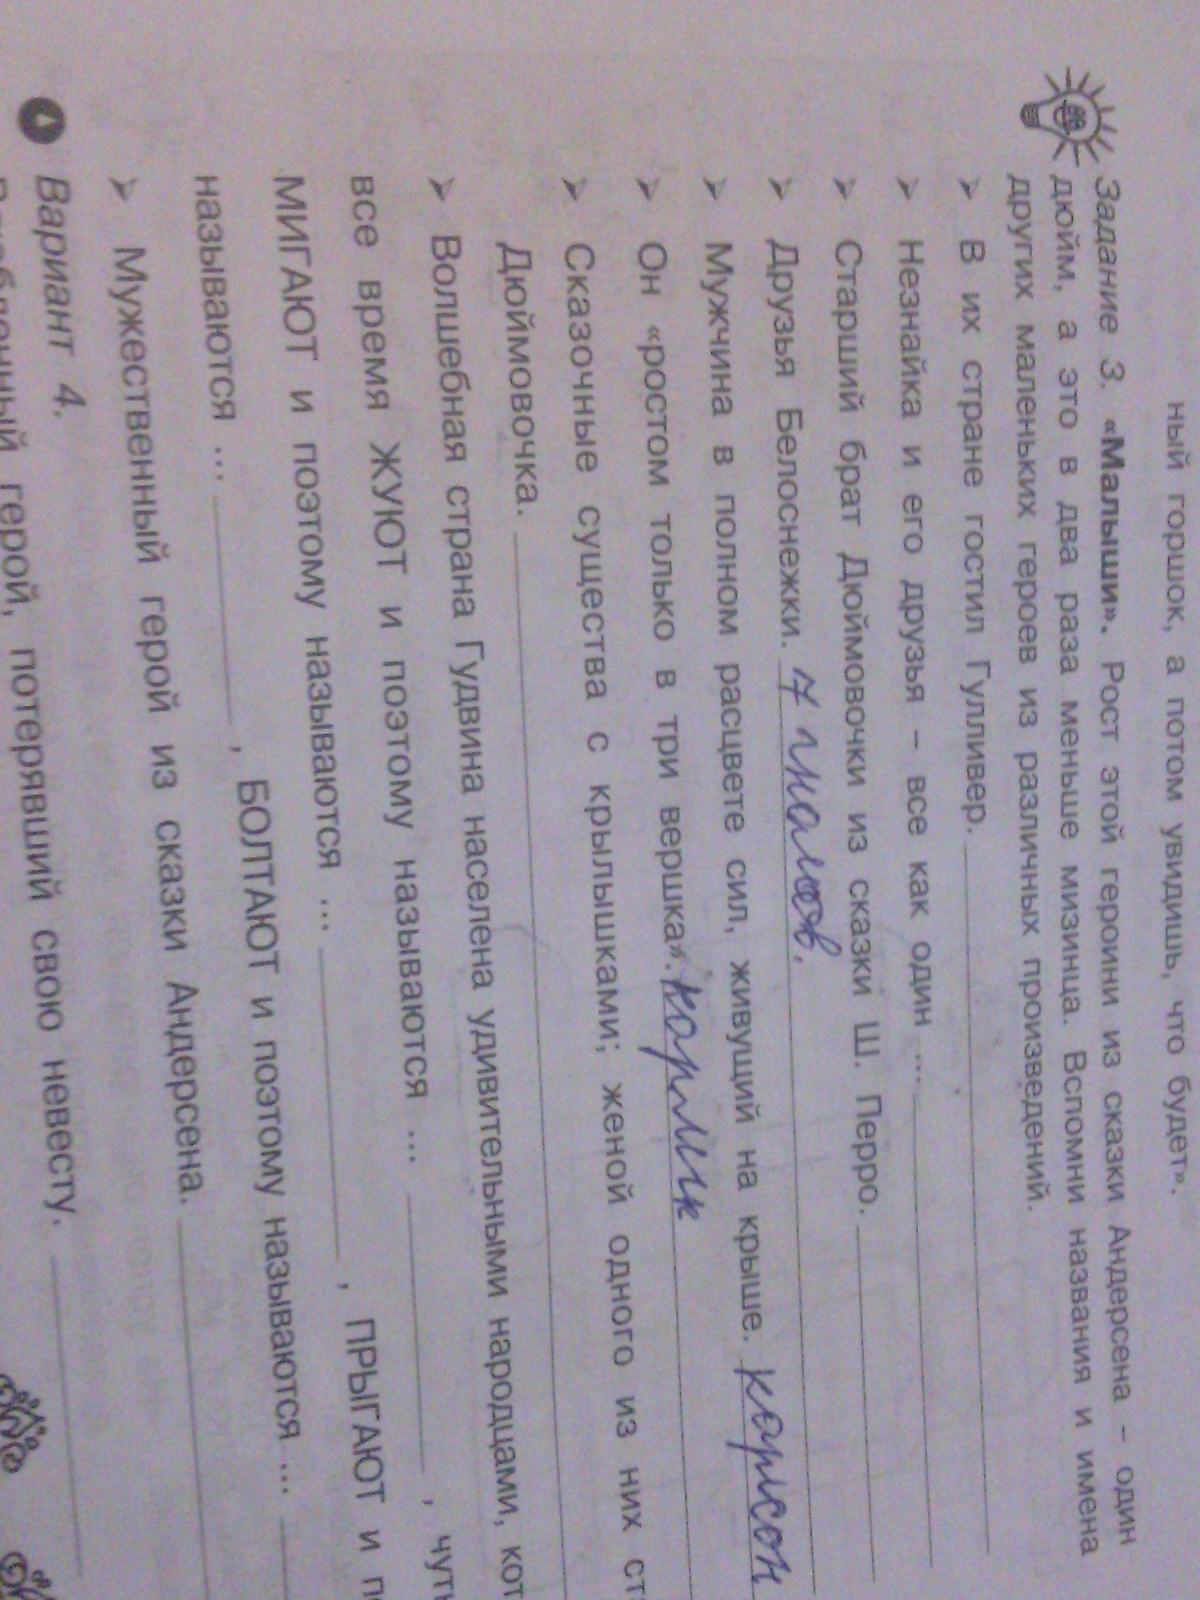 ный горшок, а потом увидишь, что будет».
Задание 3. «Малыши». Рост этой героини из сказки Андерсена – один
дюйм, а это в два раза меньше мизинца. Вспомни названия и имена
других маленьких героев из различных произведений.
➢ В их стране гостил Гулливер.
➢ Незнайка и его друзья – все как один ...
➢ Старший брат Дюймовочки из сказки Ш. Перро.
➢ Друзья Белоснежки. 7 гномов.
➢ Мужчина в полном расцвете сил, живущий на крыше. карлсон
➢ Он «ростом только в три вершка». карлик
➢ Сказочные существа с крылышками; женой одного из них ст
Дюймовочка.
➢ Волшебная страна Гудвина населена удивительными народцами, кот
все время ЖУЮТ и поэтому называются ... , чуть
МИГАЮТ и поэтому называются ... , ПРЫГАЮТ и п
называются ... , БОЛТАЮТ и поэтому называются ...
➢ Мужественный герой из сказки Андерсена.
Вариант 4.
герой, потерявший свою невесту.